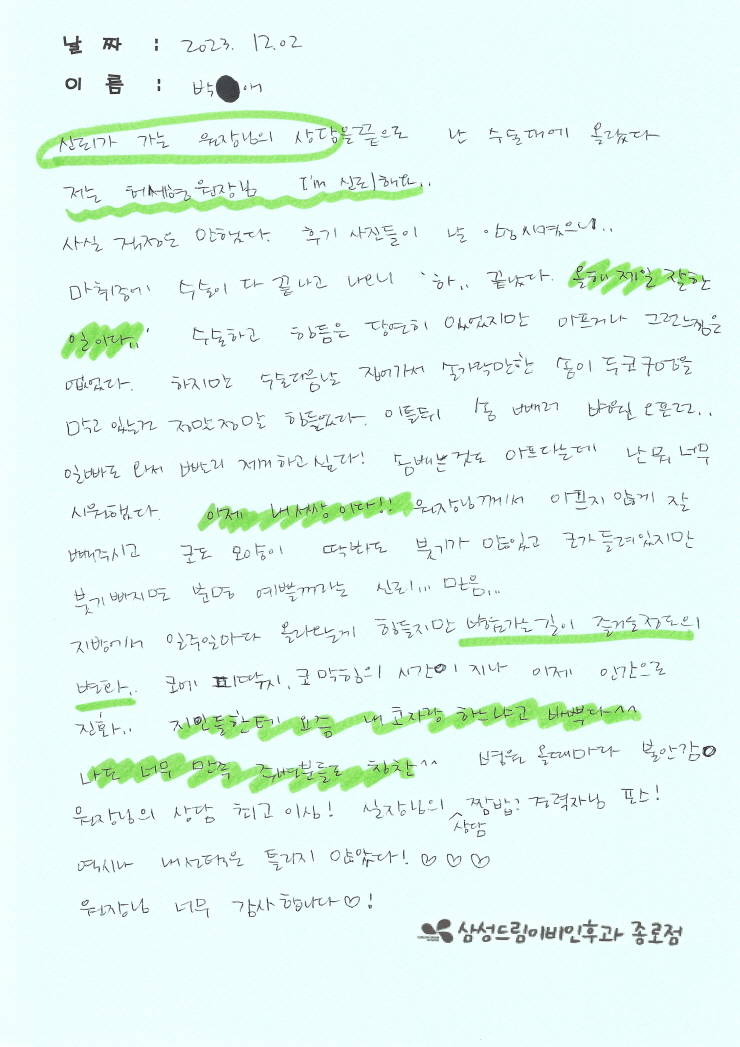 날 짜 : 2023. 12.02
이 름 : 박 애
신뢰가 가는 원장님의 상담을 끝으로 난 수술대에 올랐다
저는 허세형원장님 I'm 신뢰해요..
사실 걱정은 안했다. 후기 사진들이 날 안심시켰으니..
마취중에 수술이 다 끝나고 나오니 '하.. 끝났다. 올해 제일 잘한
일이다..' 수술하고 힘듬은 당연히 있었지만 아프거나 그런느낌은
없었다. 하지만 수술다음날 집에가서 손가락만한 솜이 두콧구멍을
막고 있는건 정말정말 힘들었다. 이틀뒤 솜 빼러 병원 오픈런..
일빠로 와서 빨리 제거하고 싶다! 솜빼는것도 아프다는데 난 뭐 너무
시원했다. 이제 내세상이다!! 원장님께서 아프지 않게 잘
빼주시고 코도 모양이 딱봐도 붓기가 안있고 코가 들려있지만
붓기 빠지면 분명 예쁠꺼라는 신뢰... 믿음...
지방에서 일주일마다 올라오는게 힘들지만 병원가는길이 즐거울정도의
변화.. 코에 피딱지, 코막힘의 시간이 지나 이제 인간으로
진화.. 지인들한테 요즘 내 코자랑 하느냐고 바쁘다^^
나도 너무 만족 주변분들도 칭찬^^ 병원 올때마다 불안감0
원장님의 상담 최고 이상! 실장님의 상담 짬밥? 경력자님 포스!
역시나 내선택은 틀리지 않았다! ♡ ♡ ♡
원장님 너무 감사합니다♡!
삼성드림이비인후과 종로점